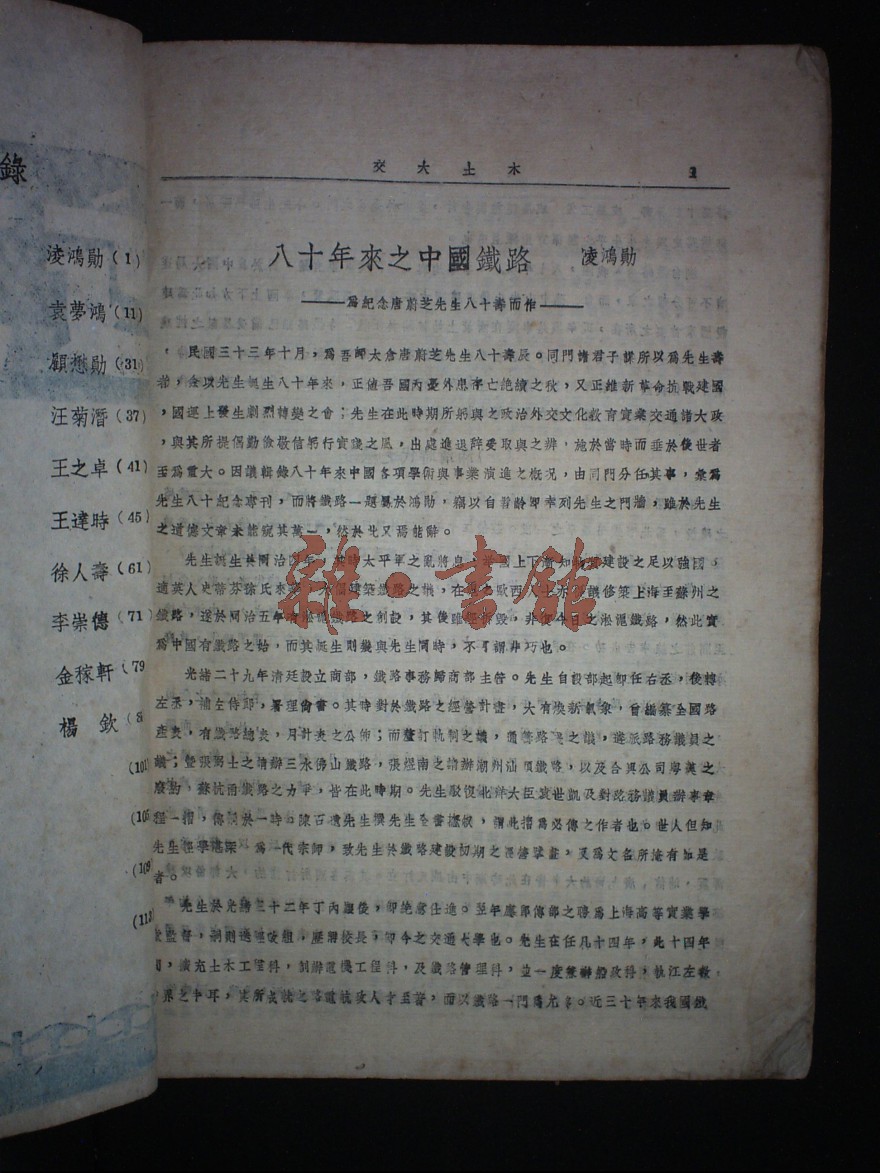 錄
凌鴻勛 (1)
袁夢鴻 (11)
顧懋勛 (31)
汪菊潛 (37)
王之卓 (41)
王達時 (45)
徐人壽 (61)
李崇德 (71)
金稼軒 (79
楊 欽 (8
(101
(105
(109
(113
交大土木 1
八十年來之中國鐵路 凌鴻勛
——爲紀念唐蔚芝先生八十壽而作——
民國三十三年十月，爲吾師太倉唐蔚芝先生八十壽辰。同門諸君子謀所以爲先生壽
者，僉以先生誕生八十年來，正値吾國內憂外患存亡絕續之秋，又正維新革命抗戰建國
，國運上發生劇烈轉變之會；先生在此時期所躬與之政治外交文化敎育實業交通諸大政
，與其所提倡勤儉敬信躬行實踐之風，出處進退辭受取與之辨，施於當時而垂於後世者
至爲重大。因議輯錄八十年來中國各項學術與事業演進之槪況，由同門分任其事，彙爲
先生八十紀念專刊，而將鐵路一題屬於鴻勛，竊以自菁齡卽幸列先生之門牆，雖於先生
之道德文章未能窺其萬一，然於此又焉能辭。
先生誕生於同治四年，其時太平軍之亂將息，國上下漸知建設之足以強國，
適英人史蒂芬孫氏來，倡建築鐵路之議，在之歐西人士亦議修築上海至蘇州之
鐵路，遂於同治五年有淞滬鐵路之創設，其後雖經拆毀，非復今日之淞滬鐵路，然此實
爲中國有鐵路之始，而其誕生則幾與先生同時，不可謂非巧也。
光緒二十九年淸廷設立商部，鐵路事務歸商部主管。先生自設部起卽任右丞，後轉
左丞，補左侍郞，署理尙書。其時對於鐵路之經營計畫，大有煥新氣象，曾編纂全國路
產表，有鐵路總表，月計表之公佈；而釐訂軌制之議，遴派路務議員之
議；暨張弼士之請辦三水佛山鐵路，張煜南之請辦潮州汕頭鐵路，以及合興公司粵漢之
廢約，蘇杭甬鐵路之力爭，皆在此時期。先生駁復北洋大臣袁世凱及對路務議員辦事章
程一摺，傳誦於一時。陳石遺先生撰先生全書，謂此摺爲必傳之作者也。世人但知
先生經學湛深，爲一代宗師，致先生於鐵路建設初期之擘畫，反爲文名所掩有如是
者。
先生於光緒三十二年丁內艱後，卽絕意仕進。翌年應郵傳部之聘爲上海高等實業學
監督，制則改組，歷經校長，卽今之交通大學也。先生在任凡十四年，此十四年
間，擴充土木工程科，創辦電機工程科，及鐵路管理科，並一度兼辦船政科，執江左敎
界之牛耳，其所成就之人才至普，而以鐵路一門爲尤多。近三十年來我國鐵
雜·書館